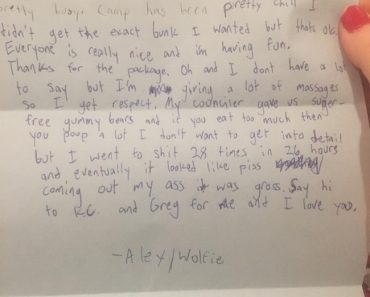 pretty busy. Camp has been pretty chill I
didn't get the exact bunk I wanted but thats ok.
Everyone is really nice and i'm having fun.
Thanks for the package. Oh and I dont have a lot
to say but I'm giving a lot of massages
so I get respect. My counsler gave us suger-
free gummy bears and if you eat too much then
you poop a lot I don't want to get into detail
but I went to shit 28 times in 26 hours
and eventually it looked like piss
coming out my ass it was gross. Say hi
to K.C. and Greg for me and I love you.
-Alex/Wolfie